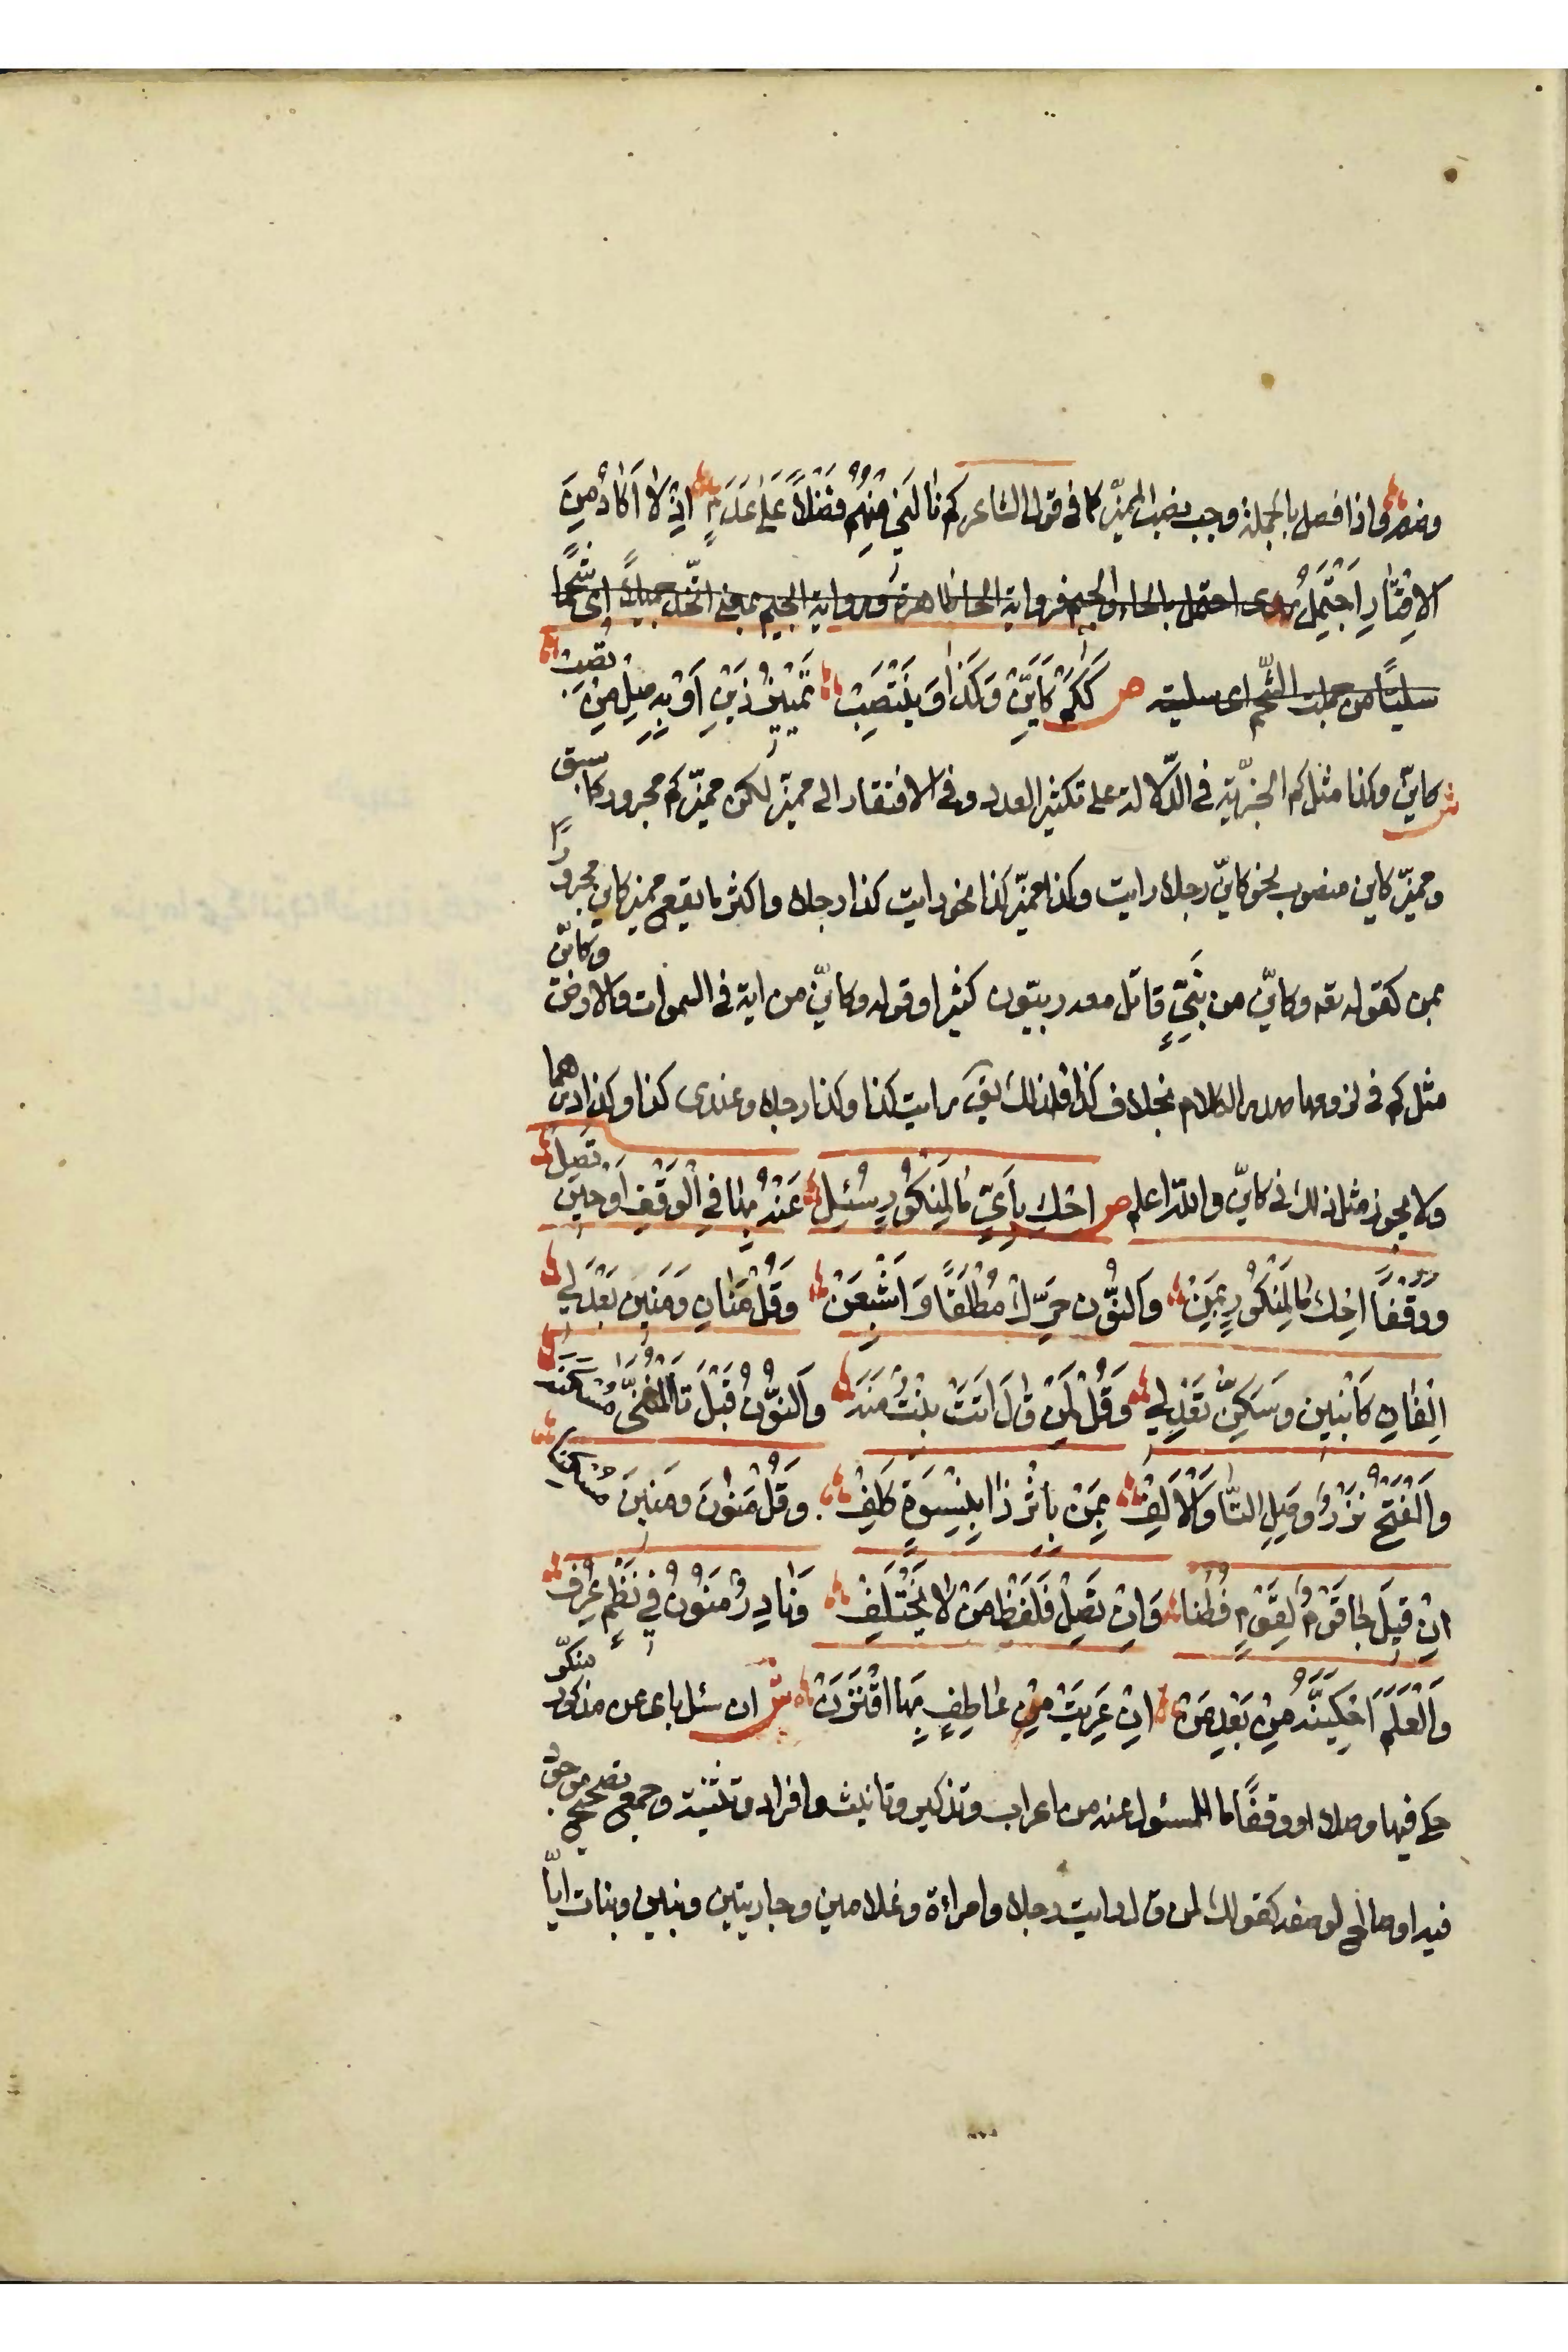 وضعه واذا فصل بالجملة وجب نصب المميّز كما فى قول الشاعر كم نالَنِى مِنْهُمُ فَضْلًا عَلَى عَدَمٍ اِذْ لا اَكَادُ مِنَ
الاِقْتَارِ اَحْتَمِلُ يروى احتمل بالحاء والجيم فرواية الحا ظاهرة ورواية الجيم بمعنى اتّخذ جميلًا اى شحمًا
سليتًا من جملت الشّحم اى سليته ص كَكَمْ كَاَيِّنْ وَكَذَا وَيَنْتَصِبْ تَمْيِيْزُ ذَيْنِ اَوْ بِهِ صِلْ مِنْ تُصِبْ
ش كايّن وكذا مثل كم الخبريّة فى الدّلالة على تكثير العدد وفى الافتقار الى مميّز لكن مميّز كم مجرور كما سبق
ومميّز كاين منصوب نحو كايّن رجلا رايت وكذا مميّز كذا نحو رايت كذا رجلا واكثر ما يقع مميز كاين مجرورًا
بمن كقوله تعه وكايّن من نَبِىٍّ قاتل معه ربيّون كثير وقوله وكايّن من اية فى السموات والارض وكايّن
مثل كم فى لزومها صدر الكلام بخلاف كذا فلذلك يقَ رايت كذا وكذا رجلا وعندى كذا وكذا درهما
ولا يجوز مثل ذلك فى كايّن واللّه اعلم ص اِحْكِ بِاَىٍّ مَا لِمَنْكُوْرٍ سُئِلْ عَنْهُ بِهَا فِى الْوَقْفِ اَوْ حِيْنَ تَصِلْ
وَوَقْفًا اَحْكِ مَا لِمَنْكُوْرٍ بِمَنْ وَالنُّوْنَ حَرِّكْ مُطْلَقًا وَاَشْبِعَنْ وَقُلْ مَنَانِ وَمَنَيْنِ بَعْدَ لِى
اِلْفَانِ كَابْنَيْنِ وَسَكِّنْ تَعْدِلِ وَقُلْ لِمَنْ قَالَ اَتَتْ بِنْتٌ مَنَهْ وَالنُّوْنُ قَبْلَ تَا الْمُثَنَّى مُسْكَنَهْ
وَالْفَتْحُ نَزْرٌ وَصِلِ التَّا وَالْاَلِفْ بِمَنْ بِاِثْرِ ذَا بِنِسْوَةٍ كَلِفْ وَقُلْ مَنُوْنَ وَمَنِيْنَ مُسْكِنَا
اِنْ قِيْلَ جَا قَوْمٌ لِقَوْمٍ فُطَنَا وَاِنْ تَصِلْ فَلَفْظُ مَنْ لا يَخْتَلِفْ وَنَادِرٌ مَنُوْنَ فِى نَظْمٍ عُرِفْ
وَالْعَلَمَ احْكِيَنَّهُ مِنْ بَعْدِ مَنْ اِنْ عَرِيَتْ مِنْ عَاطِفٍ بِهَا اقْتَرَنْ ش ان سئل باى عن مذكور منكّر
حكى فيها وصلا او وقفًا ما للمسئول عنه من اعراب وتذكير وتانيث وافراد وتثنية وجمع تصحيح موجود
فيه او صالح لوصفه كقولك لمن قال رايت رجلا وامراءة وغلامين وجاريتين وبنين وبنات ايّا